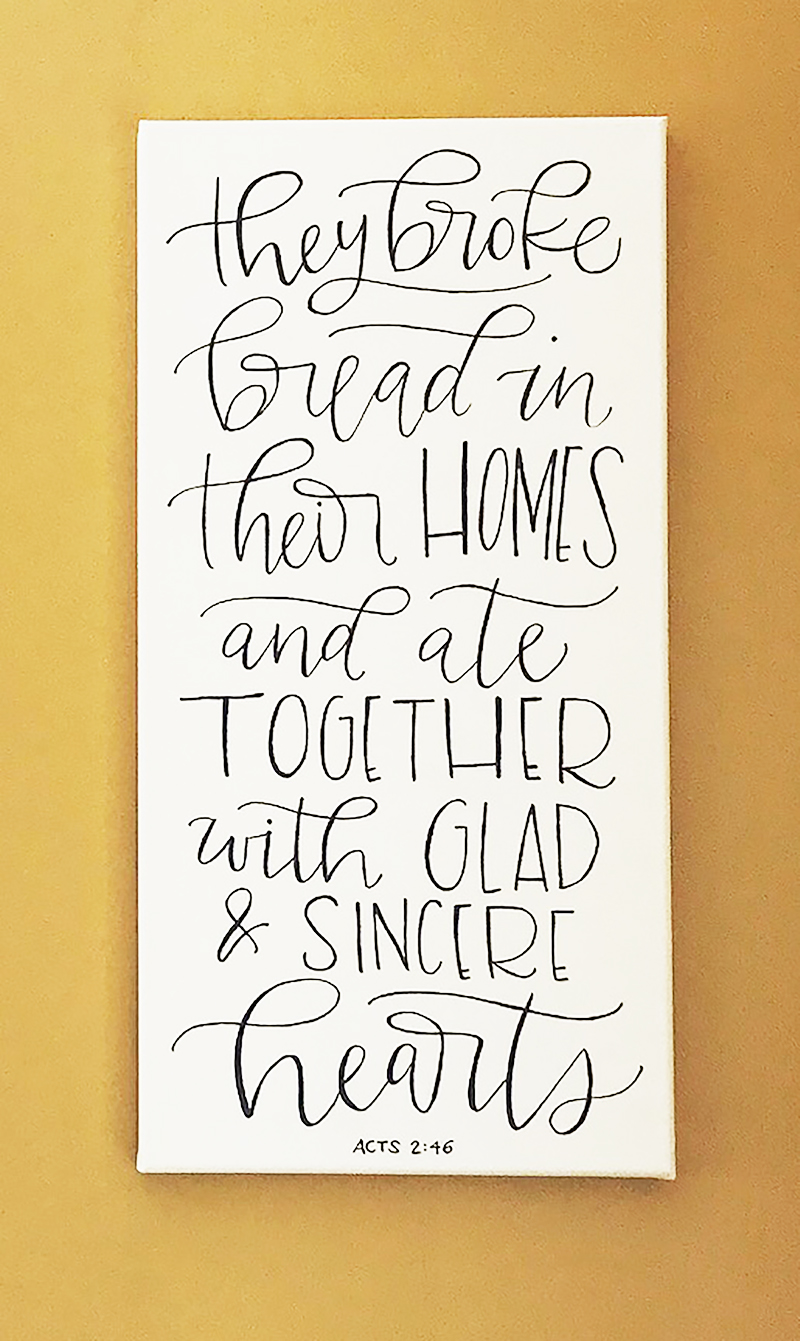 they broke
bread in
their HOMES
and ate
TOGETHER
with GLAD
& SINCERE
hearts
ACTS 2:46